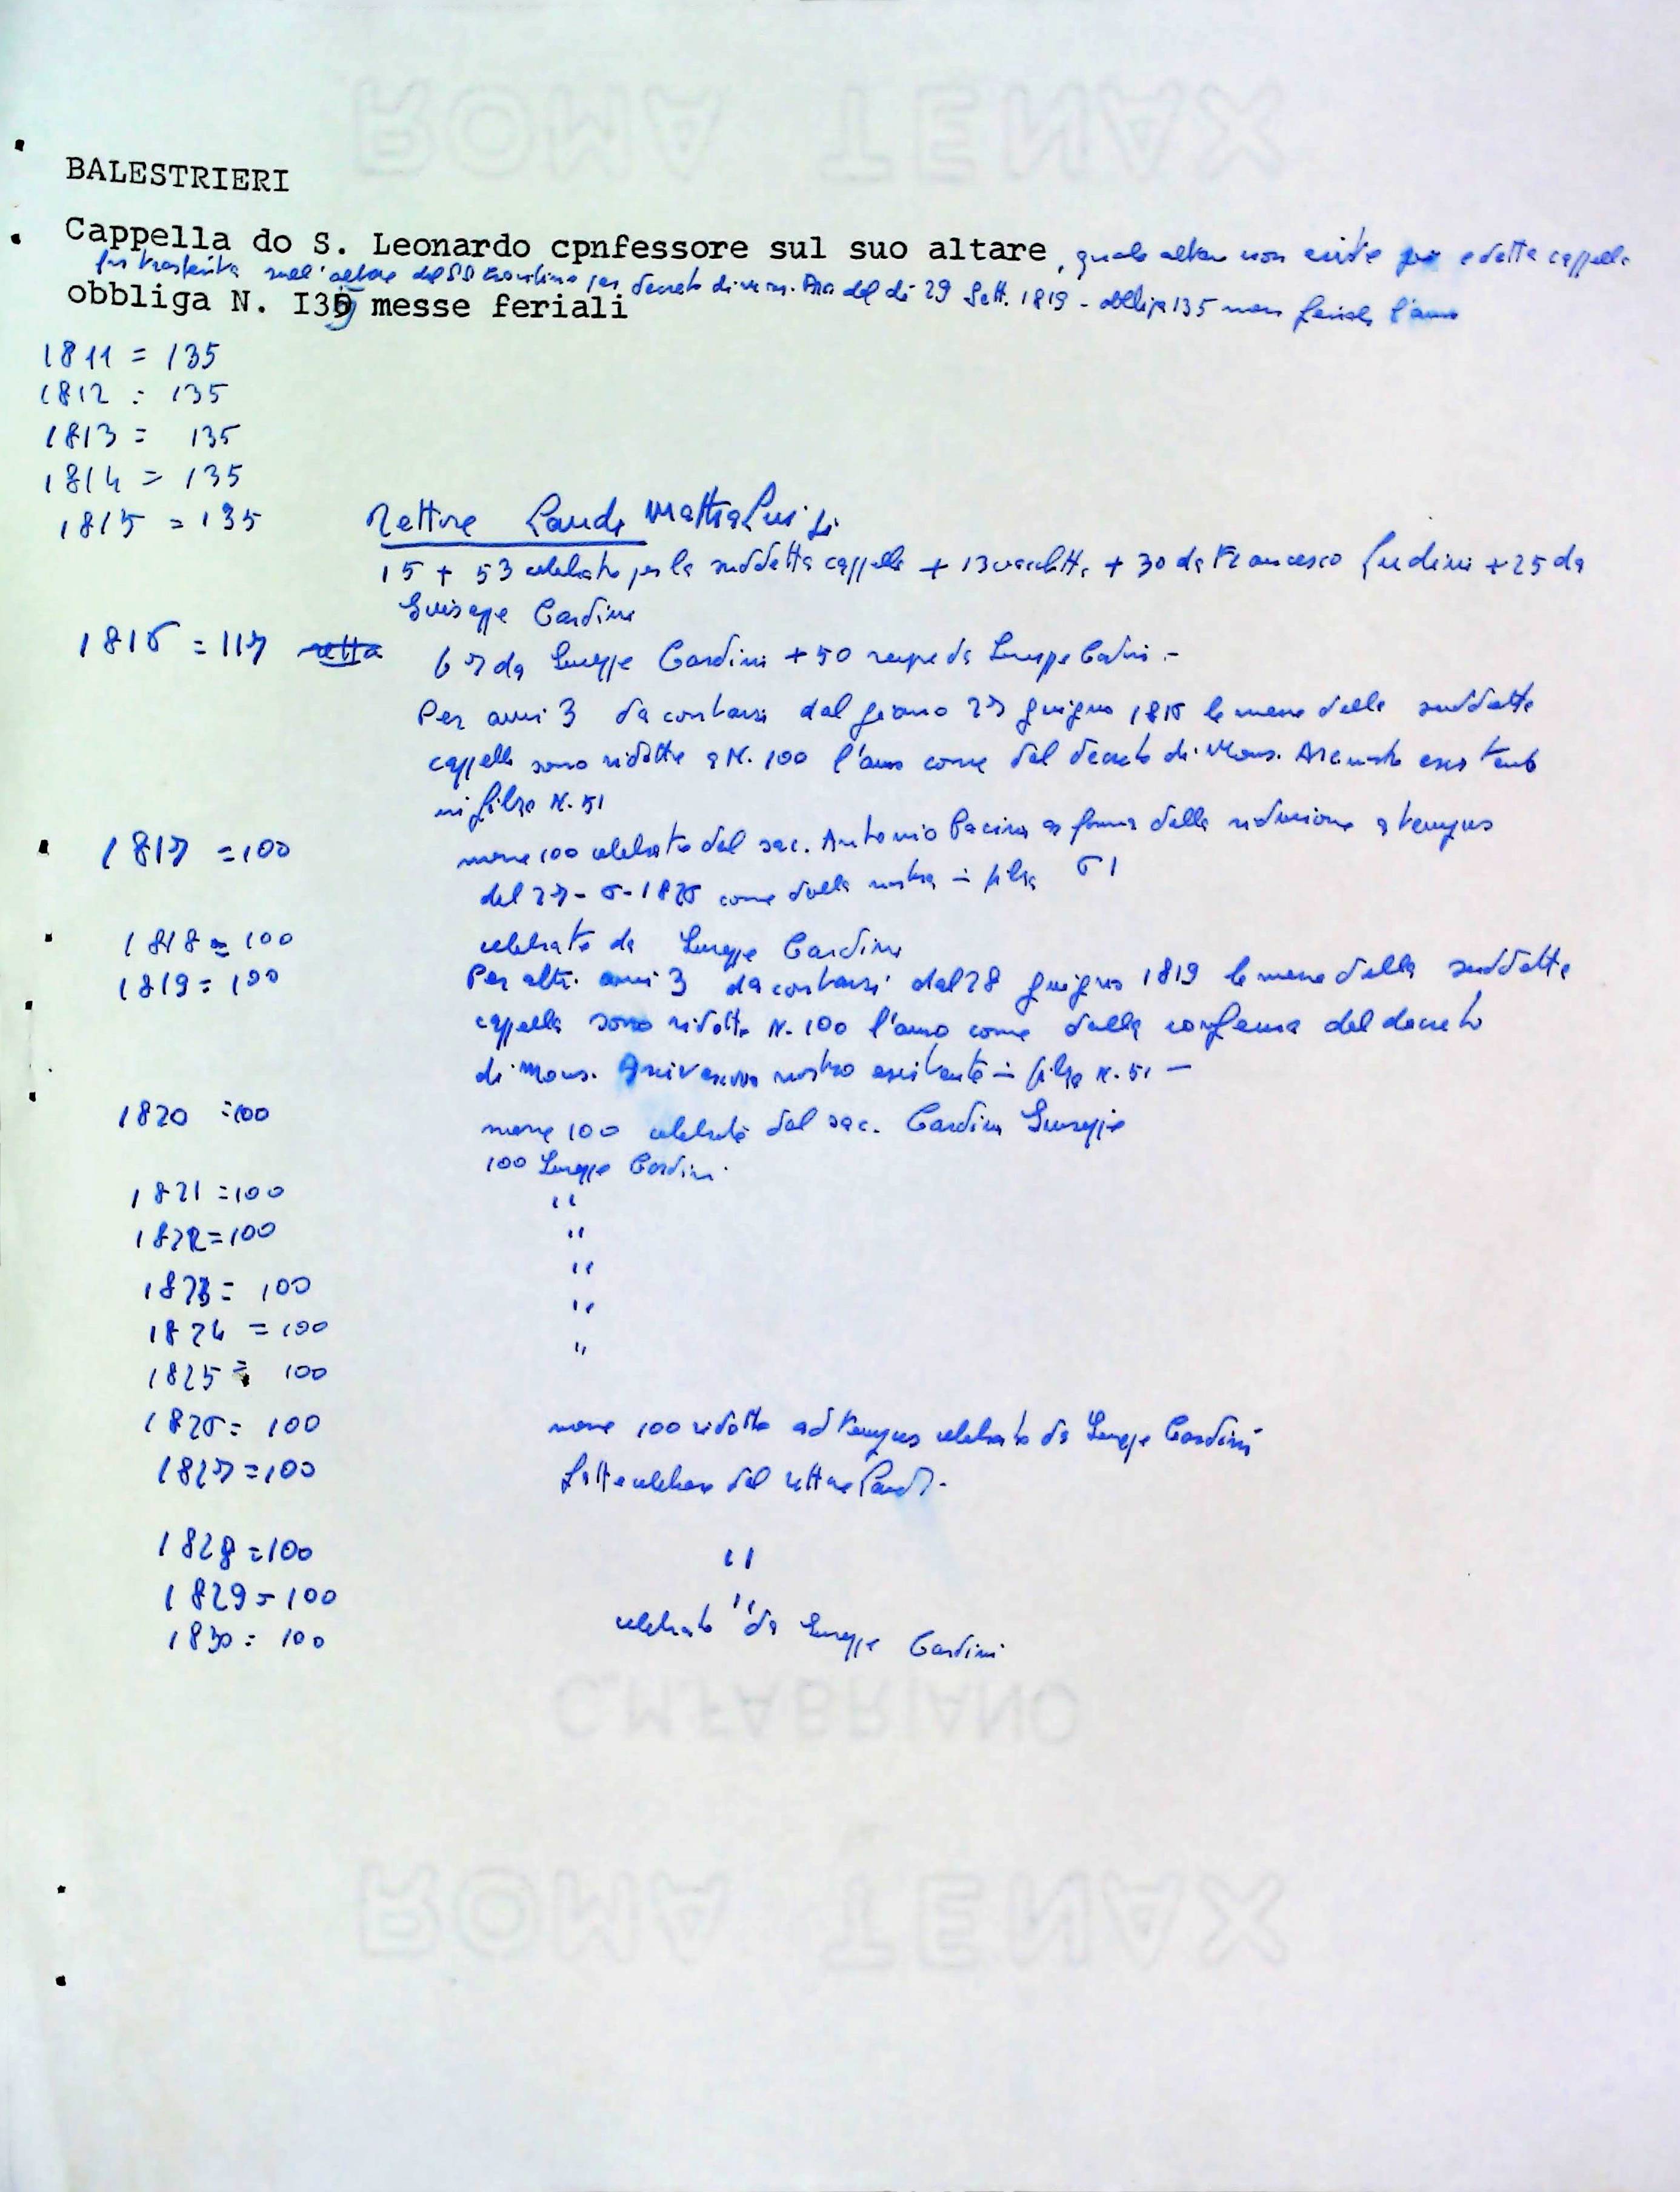 ROMA TENAX
BALESTRIERI
Cappella do S. Leonardo cpnfessore sul suo altare, quale altare non esiste più e detta cappella
fu trasferita sull'altare del SS decreto di mons. del dì 29 Sett. 1819 - obbliga 135 messe l'anno
obbliga N. I35 messe feriali
1811 = 135
1812 = 135
1813 = 135
1814 = 135
1815 = 135 Rettore Landi Mattia Luigi
15 + 53 celebrate per la suddetta cappella + 13 vacchetta + 30 da Francesco + 25 da
Giuseppe Cardini
1816 = 117 67 da Giuseppe Cardini + 50 da Giuseppe Cardini -
Per anni 3 da contarsi dal giorno 27 giugno 1816 le messe della suddetta
cappella sono ridotte a N. 100 l'anno come dal decreto di Mons. esistente
in filza N. 51
1817 = 100 messe 100 celebrate dal sac. Antonio Pacini a forma della riduzione a tempus
del 27-6-1826 come dalla nostra in filza 61
1818 = 100 celebrate da Giuseppe Cardini
1819 = 100 Per altri anni 3 da contarsi dal 28 giugno 1819 le messe della suddetta
cappella sono ridotte N. 100 l'anno come dalla conferma del decreto
di Mons. Arcivescovo nostro esistente in filza N. 51 -
1820 = 100 messe 100 celebrate dal sac. Cardini Giuseppe
100 Giuseppe Cardini
1821 = 100 "
1822 = 100 "
1823 = 100 "
1824 = 100 "
1825 = 100 "
1826 = 100 messe 100 ridotte ad tempus celebrate da Giuseppe Cardini
1827 = 100 fatte celebrare dal rettore Landi -
1828 = 100 "
1829 = 100 "
1830 = 100 celebrate da Giuseppe Cardini
C.M.FABRIANO
ROMA TENAX